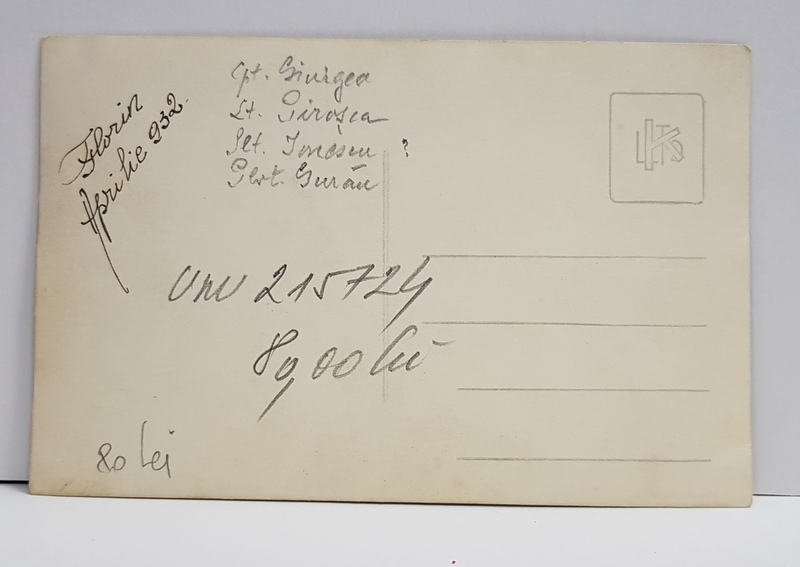 Florin
Aprilie 932.
Cpt. Giurgea
Lt. Piroșca
Slt. Ionescu ?
Plot. Gurău
UNU 215724
80,00 lei
80 lei